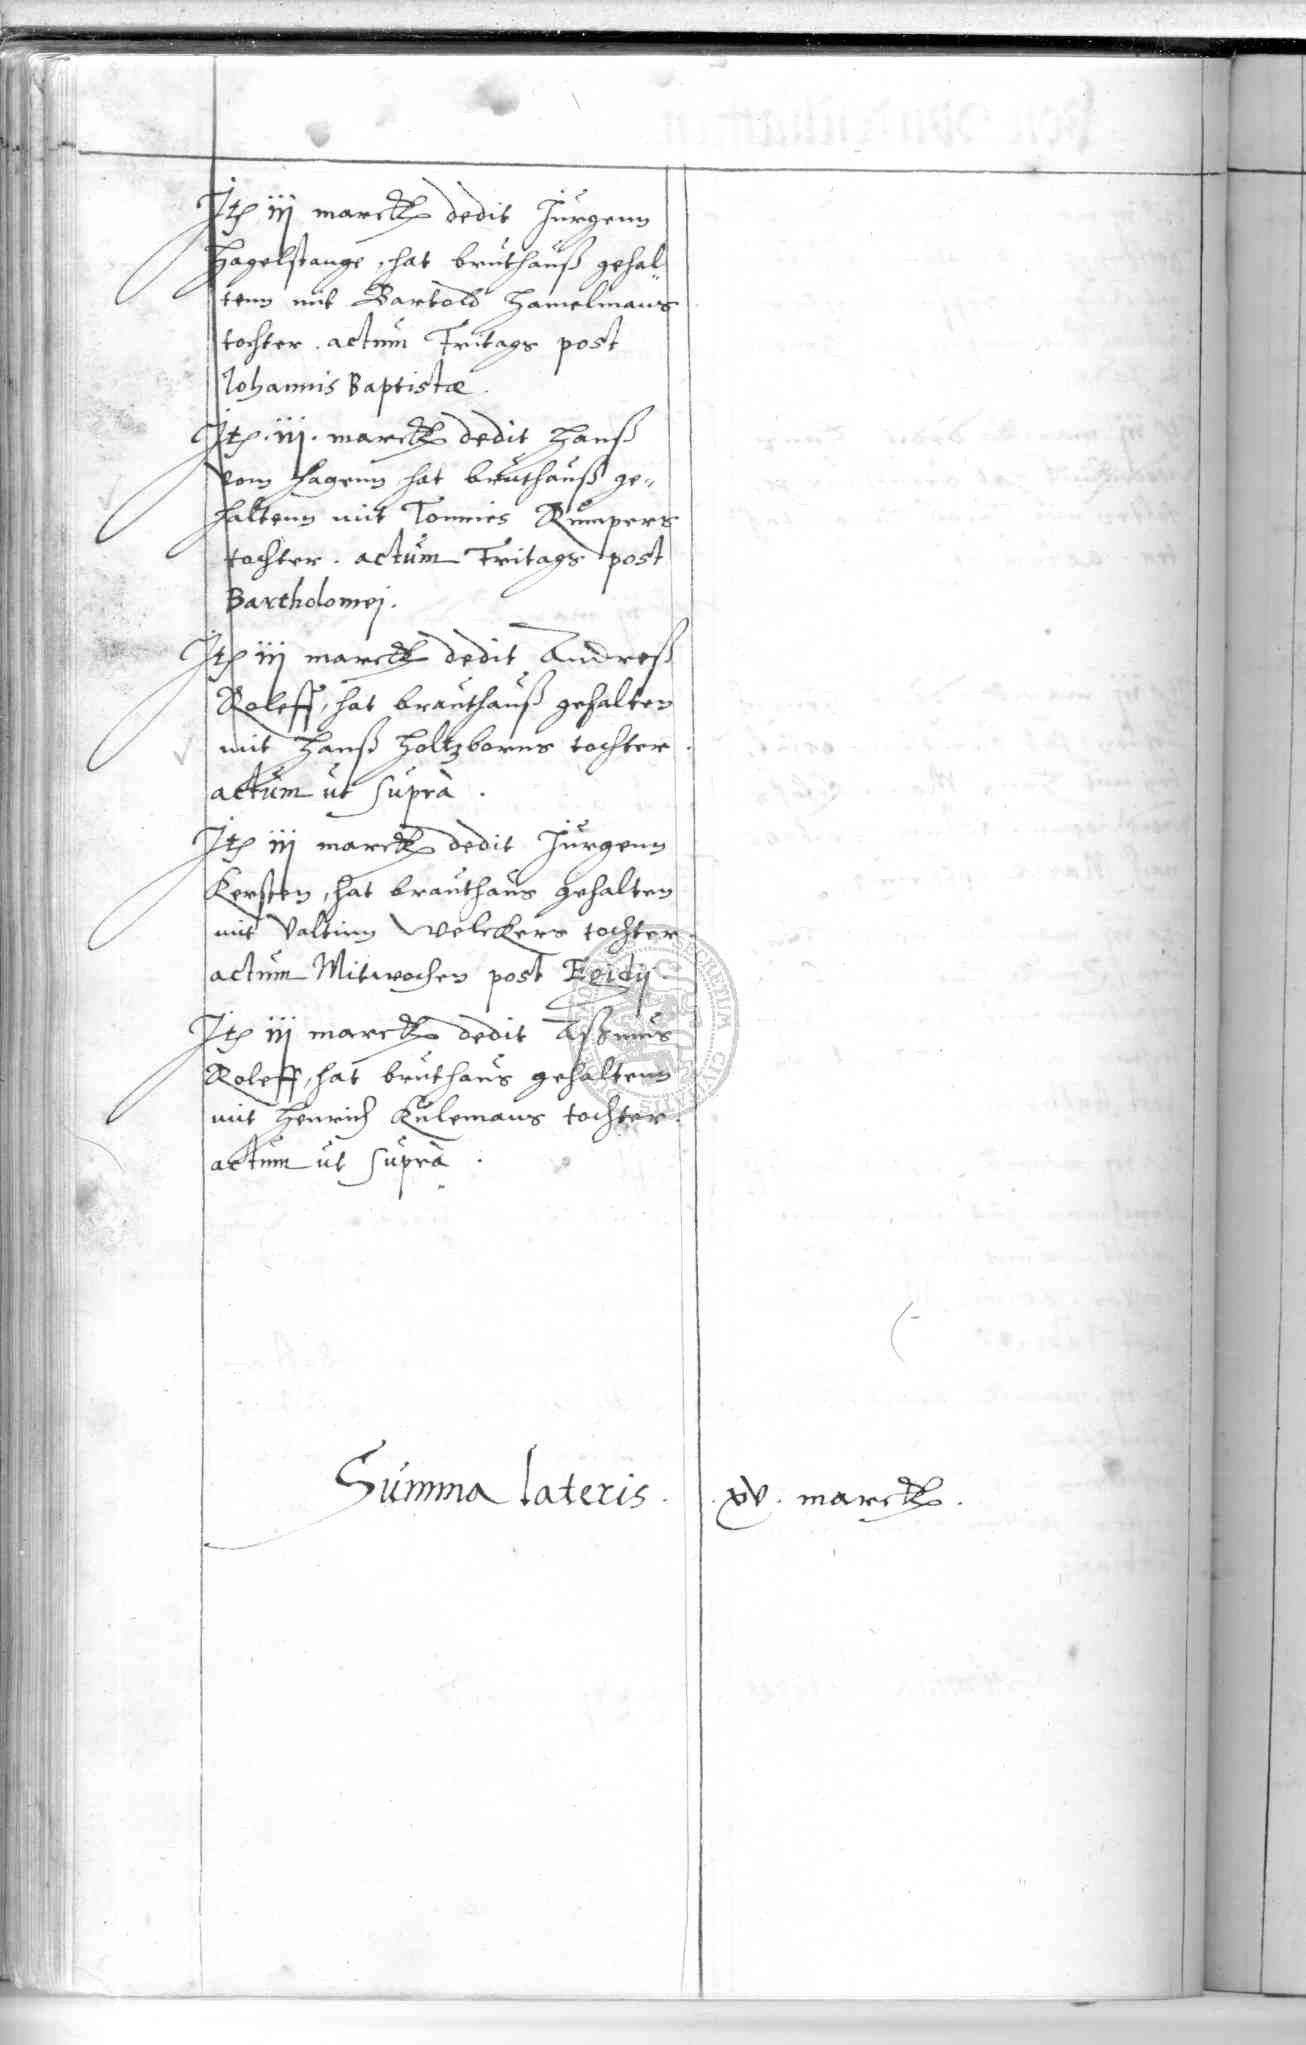 Itp iij marck dedit Jürgenn
Hagelstange, hat bruthauß gehal„
tenn mit Bartold Hamelmans
tochter. actum Fritags post
Johannis Baptistæ.
Itp. iij. marck dedit Hanß
vom Hagenn hat bruthauß ge„
haltenn mit Tonnies Rumpers
tochter. actum Fritags post
Bartholomej.
Itp iij marck dedit Andreß
Roleff, hat brauthauß gehalten
mit Hanß Holtzborns tochter.
actum ut supra.
Itp iij marck dedit Jürgenn
Kersten, hat brauthaus gehalten
mit Valtinn Velckers tochter.
actum Mitwochen post Egidij
Itp iij marck dedit Aßmus
Roleff, hat bruthaus gehaltenn
mit Henrich Kulemans tochter.
actum ut supra.
Summa lateris. . xv. marck.